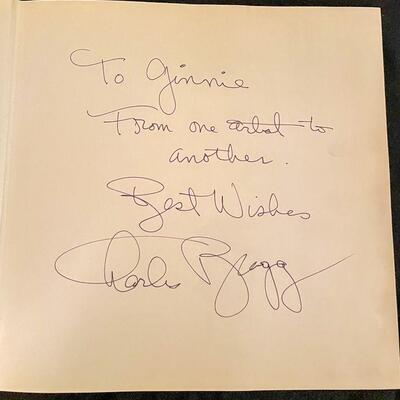 To Ginnie
From one artist to
another.
Best Wishes
Charles Bragg